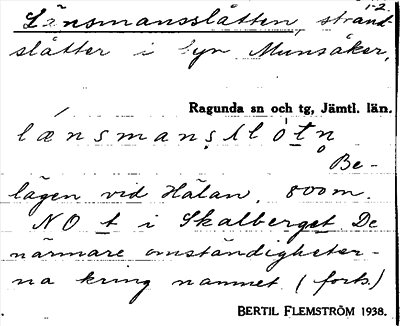 1-2.
Länsmansslåtten, strand-
slåtter i byn Munsåker,
Ragunda sn och tg, Jämtl. län.
Be-
lägen vid Hälan. 800 m.
NO t i Skalberget. De
närmare omständigheter-
na kring namnet (forts.)
BERTIL FLEMSTRÖM 1938.